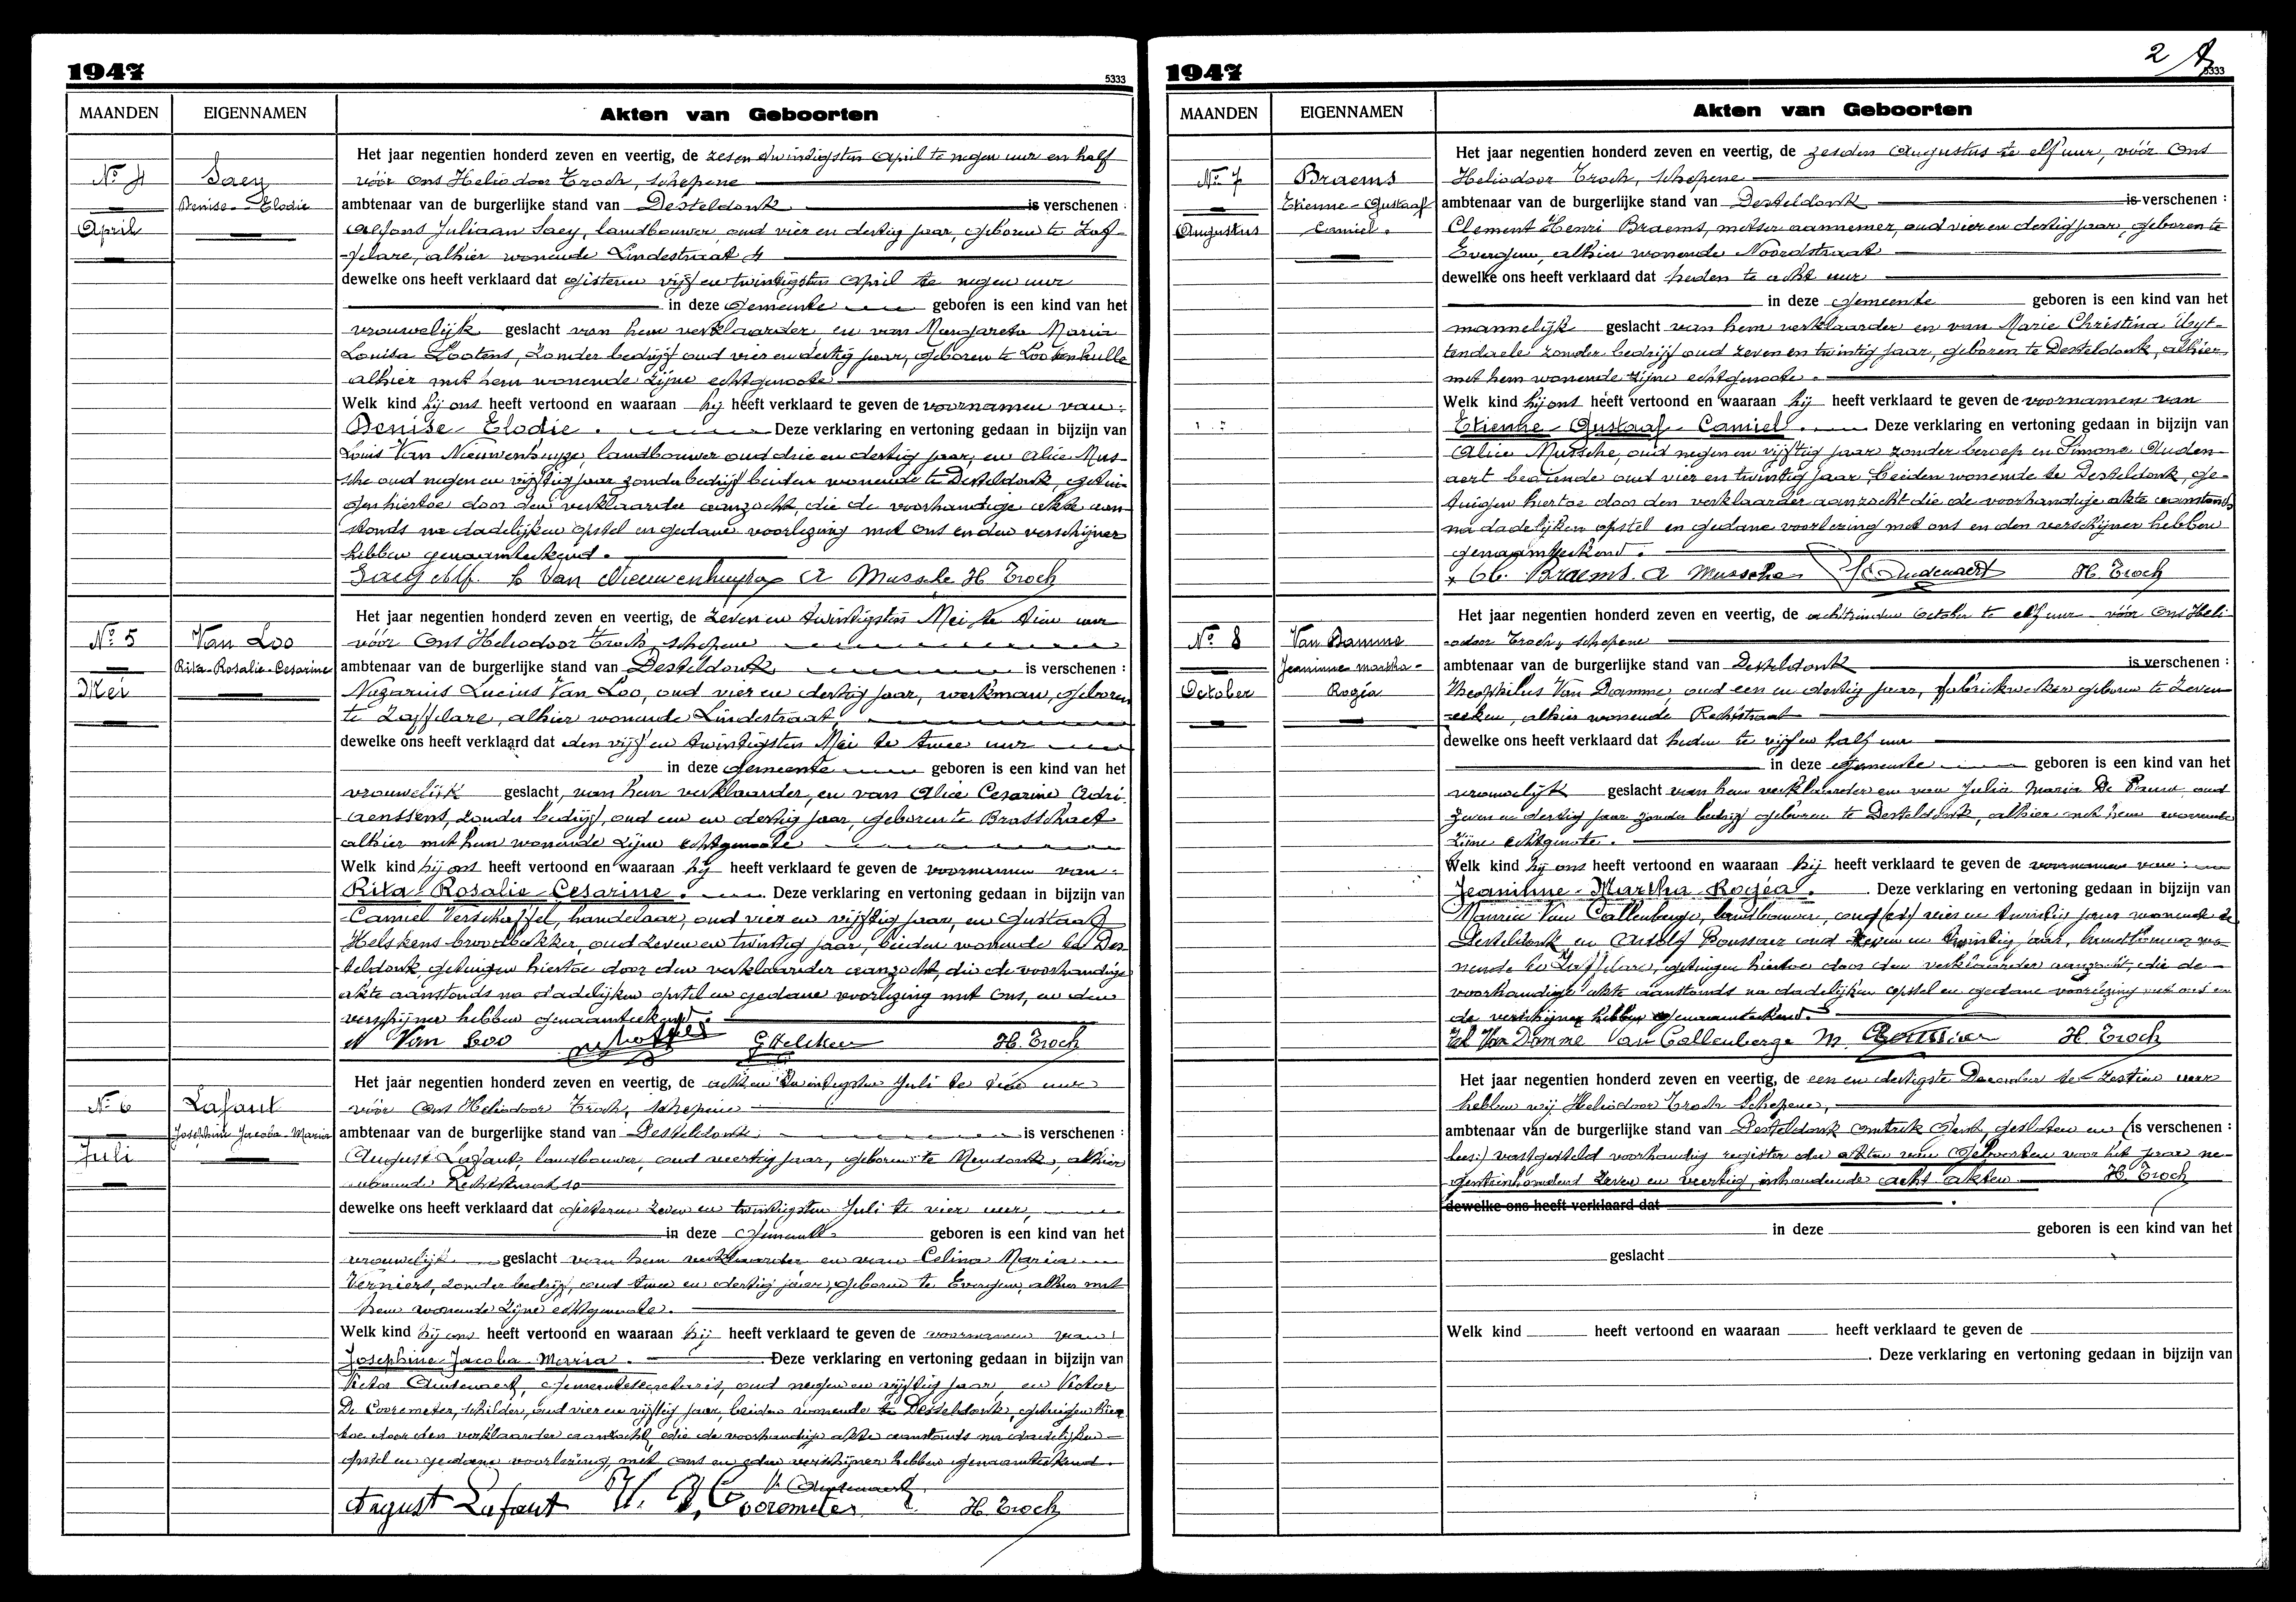 1947
5333
MAANDEN EIGENNAMEN Akten van Geboorten
Het jaar negentien honderd zeven en veertig, de zesen twintigsten April te negen uur en half
Nº 4 Saey vóór Ons Heliodoor Troch, schepene
Denise-Elodie ambtenaar van de burgerlijke stand van Desteldonk is verschenen :
April Alfons Juliaan Saey, landbouwer, oud vier en dertig jaar, geboren te Zaf-
-felare, alhier wonende Lindestraat 4
dewelke ons heeft verklaard dat gisteren vijf en twintigsten April te negen uur
in deze Gemeente geboren is een kind van het
vrouwelijk geslacht van hem verklaarder, en van Margareta Maria
Louisa Lootens, zonder bedrijf oud vier en dertig jaar, geboren te Lootenhulle
alhier met hem wonende zijne echtgenoote
Welk kind hij ons heeft vertoond en waaraan hij heeft verklaard te geven de voornamen van:
Denise-Elodie. Deze verklaring en vertoning gedaan in bijzijn van
Louis Van Nieuwenhuyze, landbouwer oud drie en dertig jaar, en Alice Mus-
sche oud negen en vijftig jaar zonder bedrijf beiden wonende te Desteldonk, getui-
gen hiertoe door den verklaarder aanzocht, die de voorhandige akte aan-
stonds na dadelijken opstel en gedane voorlezing met Ons en den verschijner
hebben genaamteekend.
Saey Alf. L Van Nieuwenhuyze A Mussche H. Troch
Het jaar negentien honderd zeven en veertig, de zeven en twintigsten Mei te tien uur
Nº 5 Van Loo vóór Ons Heliodoor Troch, schepene
Rita-Rosalie-Cesarine ambtenaar van de burgerlijke stand van Desteldonk is verschenen :
Mei Nazarius Lucius Van Loo, oud vier en dertig jaar, werkman, geboren
te Zaffelare, alhier wonende Lindestraat,
dewelke ons heeft verklaard dat den vijf en twintigsten Mei te twee uur
in deze Gemeente geboren is een kind van het
vrouwelijk geslacht, van hem verklaarder, en van Alice Cesarine Adri-
aenssens, zonder bedrijf, oud een en dertig jaar, geboren te Brasschaet
alhier met hem wonende zijne echtgenoote
Welk kind hij ons heeft vertoond en waaraan hij heeft verklaard te geven de voornamen van:
Rita-Rosalie-Cesarine. Deze verklaring en vertoning gedaan in bijzijn van
Camiel Verschaffel, handelaar, oud vier en vijftig jaar, en Gustaaf
Helskens broodbakker, oud zeven en twintig jaar, beiden wonende te Des-
teldonk, getuigen hiertoe door den verklaarder aanzocht, die de voorhandige
akte aanstonds na dadelijken opstel en gedane voorlezing met Ons, en den
verschijner hebben genaamteekend.
N Van Loo G Helskens H. Troch
Het jaar negentien honderd zeven en veertig, de acht en twintigsten Juli te tien uur
Nº 6 Lafaut vóór Ons Heliodoor Troch, schepene
Josephine-Jacoba-Maria ambtenaar van de burgerlijke stand van Desteldonk is verschenen :
Juli August Lafaut, landbouwer, oud veertig jaar, geboren te Mendonk, alhier
wonende Rechtstraat 10
dewelke ons heeft verklaard dat gisteren zeven en twintigsten Juli te vier uur,
in deze Gemeente geboren is een kind van het
vrouwelijk geslacht van hem verklaarder en van Celina Maria
Verniers, zonder bedrijf, oud twee en dertig jaar, geboren te Evergem, alhier met
hem wonende zijne echtgenoote.
Welk kind hij ons heeft vertoond en waaraan hij heeft verklaard te geven de voornamen van:
Josephine-Jacoba-Maria. Deze verklaring en vertoning gedaan in bijzijn van
Victor Oudenaert, gemeentesecretaris, oud negen en vijftig jaar, en Victor
De Cooremeter, schilder, oud vier en vijftig jaar, beiden wonende te Desteldonk, getuigen hier-
toe door den verklaarder aanzocht, die de voorhandige akte aanstonds na dadelijken
opstel en gedane voorlezing, met ons en den verschijner hebben genaamteekend.
V. Oudenaert
August Lafaut V. D. Cooremeter H. Troch
1947
2
5333
MAANDEN EIGENNAMEN Akten van Geboorten
Het jaar negentien honderd zeven en veertig, de zesden Augustus te elf uur, vóór Ons
Nº 7 Braems Heliodoor Troch, schepene
Etienne-Gustaaf ambtenaar van de burgerlijke stand van Desteldonk is verschenen :
Augustus Camiel. Clement Henri Braems, metser aannemer, oud vier en dertig jaar, geboren te
Evergem, alhier wonende Noordstraat
dewelke ons heeft verklaard dat heden te acht uur
in deze Gemeente geboren is een kind van het
mannelijk geslacht van hem verklaarder en van Marie Christina Uyt-
tendaele zonder bedrijf oud zeven en twintig jaar, geboren te Desteldonk, alhier
met hem wonende zijne echtgenoote.
Welk kind hij ons heeft vertoond en waaraan hij heeft verklaard te geven de voornamen van
Etienne-Gustaaf-Camiel. Deze verklaring en vertoning gedaan in bijzijn van
Alice Mussche, oud negen en vijftig jaar zonder beroep en Simone Ouden-
aert bediende oud vier en twintig jaar, beiden wonende te Desteldonk, ge-
tuigen hiertoe door den verklaarder aanzocht die de voorhandige akte aanstonds
na dadelijken opstel en gedane voorlezing met ons en den verschijner hebben
genaamteekend.
Cl. Braems. A Mussche S. Oudenaert H. Troch
Het jaar negentien honderd zeven en veertig, de achttienden October te elf uur vóór Ons Heli-
Nº 8 Van Damme -odoor Troch, schepene
Jeaninne-Martha- ambtenaar van de burgerlijke stand van Desteldonk is verschenen :
October Rogéa Theophilus Van Damme, oud een en dertig jaar, fabriekwerker geboren te Zeven-
eeken, alhier wonende Rechtstraat
dewelke ons heeft verklaard dat heden te vijf en half uur
in deze Gemeente geboren is een kind van het
vrouwelijk geslacht van hem verklaarder en van Julia Maria De Pauw oud
zeven en dertig jaar zonder bedrijf geboren te Desteldonk, alhier met hem wonende
zijne echtgenoote.
Welk kind hij ons heeft vertoond en waaraan hij heeft verklaard te geven de voornamen van:
Jeaninne-Martha-Rogéa. Deze verklaring en vertoning gedaan in bijzijn van
Maurice Van Callenberge, landbouwer, oud vier en twintig jaar wonende te
Desteldonk en Adolf Boussier oud zeven en twintig jaar, landbouwer wo-
nende te Zaffelare, getuigen hiertoe door den verklaarder aanzocht, die de
voorhandige akte aanstonds na dadelijken opstel en gedane voorlezing met ons en
de verschijner hebben genaamteekend.
Th Van Damme Van Callenberge M. Boussier H. Troch
Het jaar negentien honderd zeven en veertig, de een en dertigste December te zestien uur
hebben wij Heliodoor Troch Schepene,
ambtenaar van de burgerlijke stand van Desteldonk omtrek Gent, gesloten en (is verschenen :
lees:) vastgesteld voorhandig register der akten van Geboorten voor het jaar ne-
gentienhonderd zeven en veertig, inhoudende acht akten H. Troch
dewelke ons heeft verklaard dat
in deze geboren is een kind van het
geslacht
Welk kind heeft vertoond en waaraan heeft verklaard te geven de
. Deze verklaring en vertoning gedaan in bijzijn van